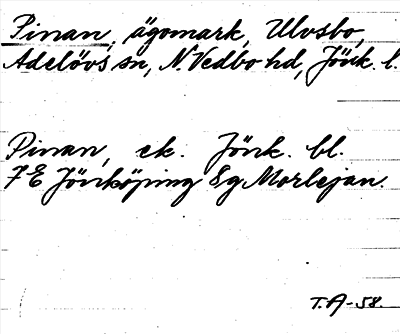 Pinan, ägomark, Ulvsbo,
Adelövs sn, N. Vedbo hd, Jönk. l.
Pinan, ek. Jönk. bl.
7 E Jönköping 8 g Morlejan.
T. A-58.